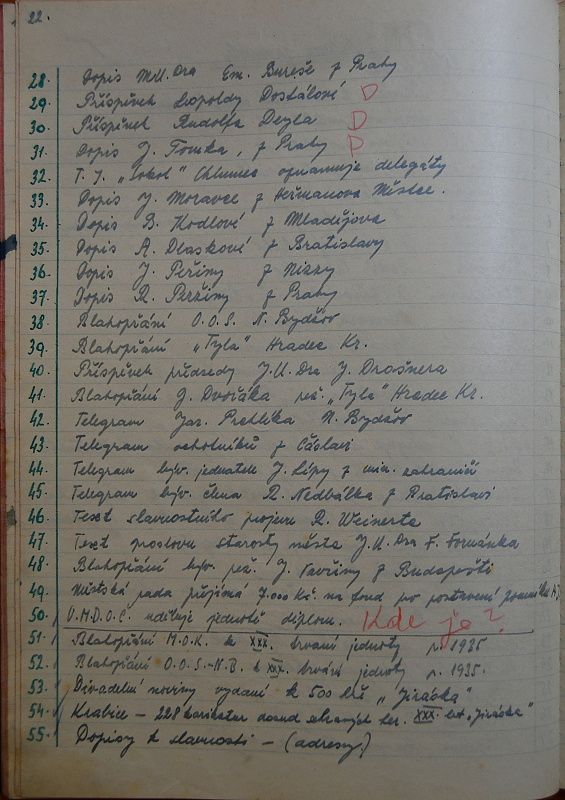 22.
28. Dopis MUDra Em. Bureše z Prahy
29. Příspěvek Leopoldy Dostálové D
30. Příspěvek Rudolfa Deyla D
31. Dopis J. Tomka, z Prahy D
32. T. J. „Sokol" Chlumec oznamuje delegáty
33. Dopis J. Moravce z Heřmanova Městce.
34. Dopis B. Hodlové z Mladějova
35. Dopis A. Dlaskové z Bratislavy
36. Dopis J. Peřiny z Nizzy
37. Dopis R. Peřiny z Prahy
38. Blahopřání O.O.S. N. Bydžov
39. Blahopřání „Tyla" Hradec Kr.
40. Příspěvek předsedy J.U.Dra J. Drašnera
41. Blahopřání J. Dvořáka rež. „Tyla" Hradec Kr.
42. Telegram Jar. N. Bydžov
43. Telegram ochotníků z Čáslavi
44. Telegram býv. jednatele J. Lípy z min. zahraničí
45. Telegram býv. člena R. Nedbálka z Bratislavi
46. Text slavnostního projevu R. Weinerta
47. Text proslovu starosty města J.U.Dra F. Formánka
48. Blahopřání býv. rež. J. Vavřiny z Budapešti
49. Městská rada přijímá 7.000 Kč. na fond po postavení
50. Ú.M.D.O.C. uděluje jednotě diplom. Kde je?
51. Blahopřání M.O.K. k XXX. trvání jednoty r. 1935
52. Blahopřání O.O.S.-N.B. k XXX. trvání jednoty r. 1935.
53. Divadelní noviny vydané k 500 hře „Jiráska"
54. Krabice – 228 karikatur XXX. let „Jiráska"
55. Dopisy k slavnosti – (adresy.)